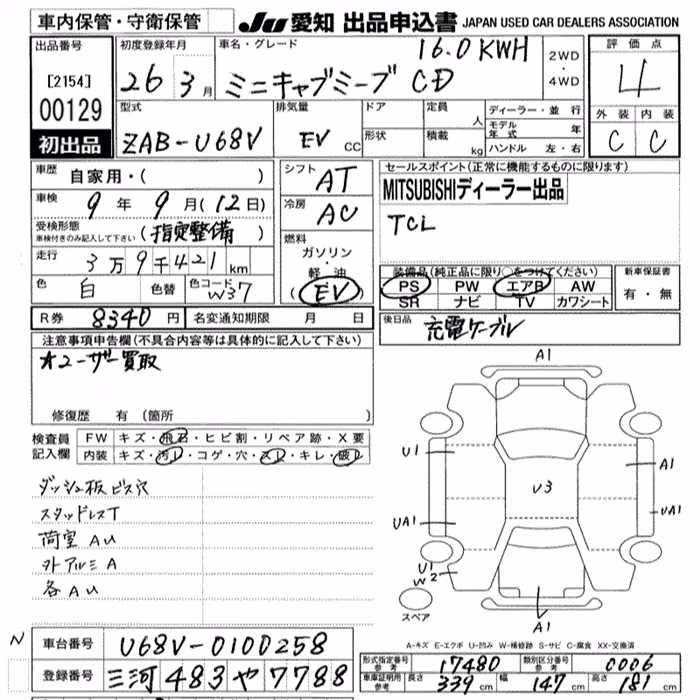 車内保管・守衛保管
JU 愛知 出品申込書 JAPAN USED CAR DEALERS ASSOCIATION
出品番号
[2154]
00129
初出品
初度登録年月
26 3月
車名・グレード
16.0KWH
ミニキャブミーブ CD
2WD
・
4WD
評価点
4
外装 内装
C C
型式
ZAB-U68V
排気量
EV CC
ドア
形状
定員
人
積載
kg
ディーラー・並行
モデル年式 年
ハンドル 左・右
車歴
自家用・( )
車検
9年9月(12日)
受検形態
車検付きのみ記入して下さい
(指定整備)
走行
3万9千421km
色
白
色替
色コード
W37
シフト
AT
冷房
AC
燃料
ガソリン
・
軽・油
(EV)
セールスポイント(正常に機能するものに限ります)
MITSUBISHIディーラー出品
TCL
装備品(純正品に限り○をつけてください)
PS PW エアB AW
SR ナビ TV カワシート
新車保証書
有・無
R券 8340円 名変通知期限 月 日
後日品
充電ケーブル
注意事項申告欄(不具合内容等は具体的に記入して下さい)
★ユーザー買取
修復歴 有(箇所
検査員
記入欄
FW キズ・飛石・ヒビ割・リペア跡・X要
内装 キズ・汚レ・コゲ・穴・スレ・キレ・破レ
ダッシュ板ビス穴
スタッドレスT
荷室AU
外アルミA
各AU
A1
U1
A1
U3
UA1
UA1
U1
W2
スペア
A1
A-キズ E-エクボ U-凹み W-補修跡 S-サビ C-腐食 XX-交換済
N
車台番号 U68V-0100258
登録番号 三河 483 や 7788
形式指定番号
参考
17480
類別区分番号
参考
0006
車庫証明用
参考
長さ 339cm 幅 147cm 高さ 181cm